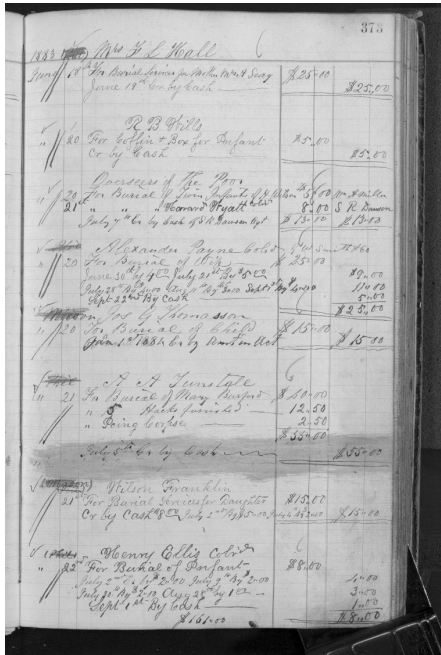 373
1883 Mrs F L Hall
June 18th For Burial Services for Mother Mrs A $25.00
June 19th Cr by Cash $25.00
R B Wills
" 20 For Coffin & Box for Infant $5.00
Cr by Cash $5.00
Overseers of The Poor
" 20 For Burial of Twin Infants of H 5.00
21st " " " Howard Wyatt Cold 8.00 S R Dawson
July 7th Cr by Cash of S R Dawson Agt $13.00 $13.00
Alexander Payne Cold
" 20 For Burial of Wife $25.00
June 30th By 4.00 July 21st By $5.00 $9.00
July 28th By 4.00 By 3.00 Sept By 4.00 11.00
Sept 22nd By Cash 5.00
$25.00
Jos G Thomasson
" 20 For Burial of Child $15.00
1st 1884 Cr by Act $15.00
A A Tunstyle
" 21 For Burial of Mary Burford $40.00
" 5 Hacks furnished 12.50
" Icing Corpse 2.50
$55.00
July 5th Cr by Cash $55.00
Wilson Franklin
" 21st For Burial Services for Daughter $15.00
Cr by Cash $8.00 July 2nd By $5.00 By 2.00 $15.00
Henry Ellis Cold
" 22nd For Burial of Infant $8.00
July 2nd Cr by 2.00 July 9th By $2.00 4.00
July 30th By $2.00 Aug 28th by 1.00 3.00
Sept 1st By Cash 1.00
$161.00 $8.00